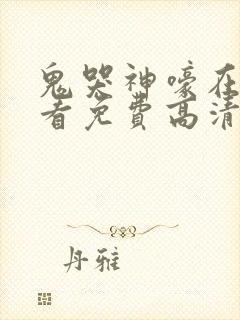 鬼哭神嚎在
看免费高清
丹雅